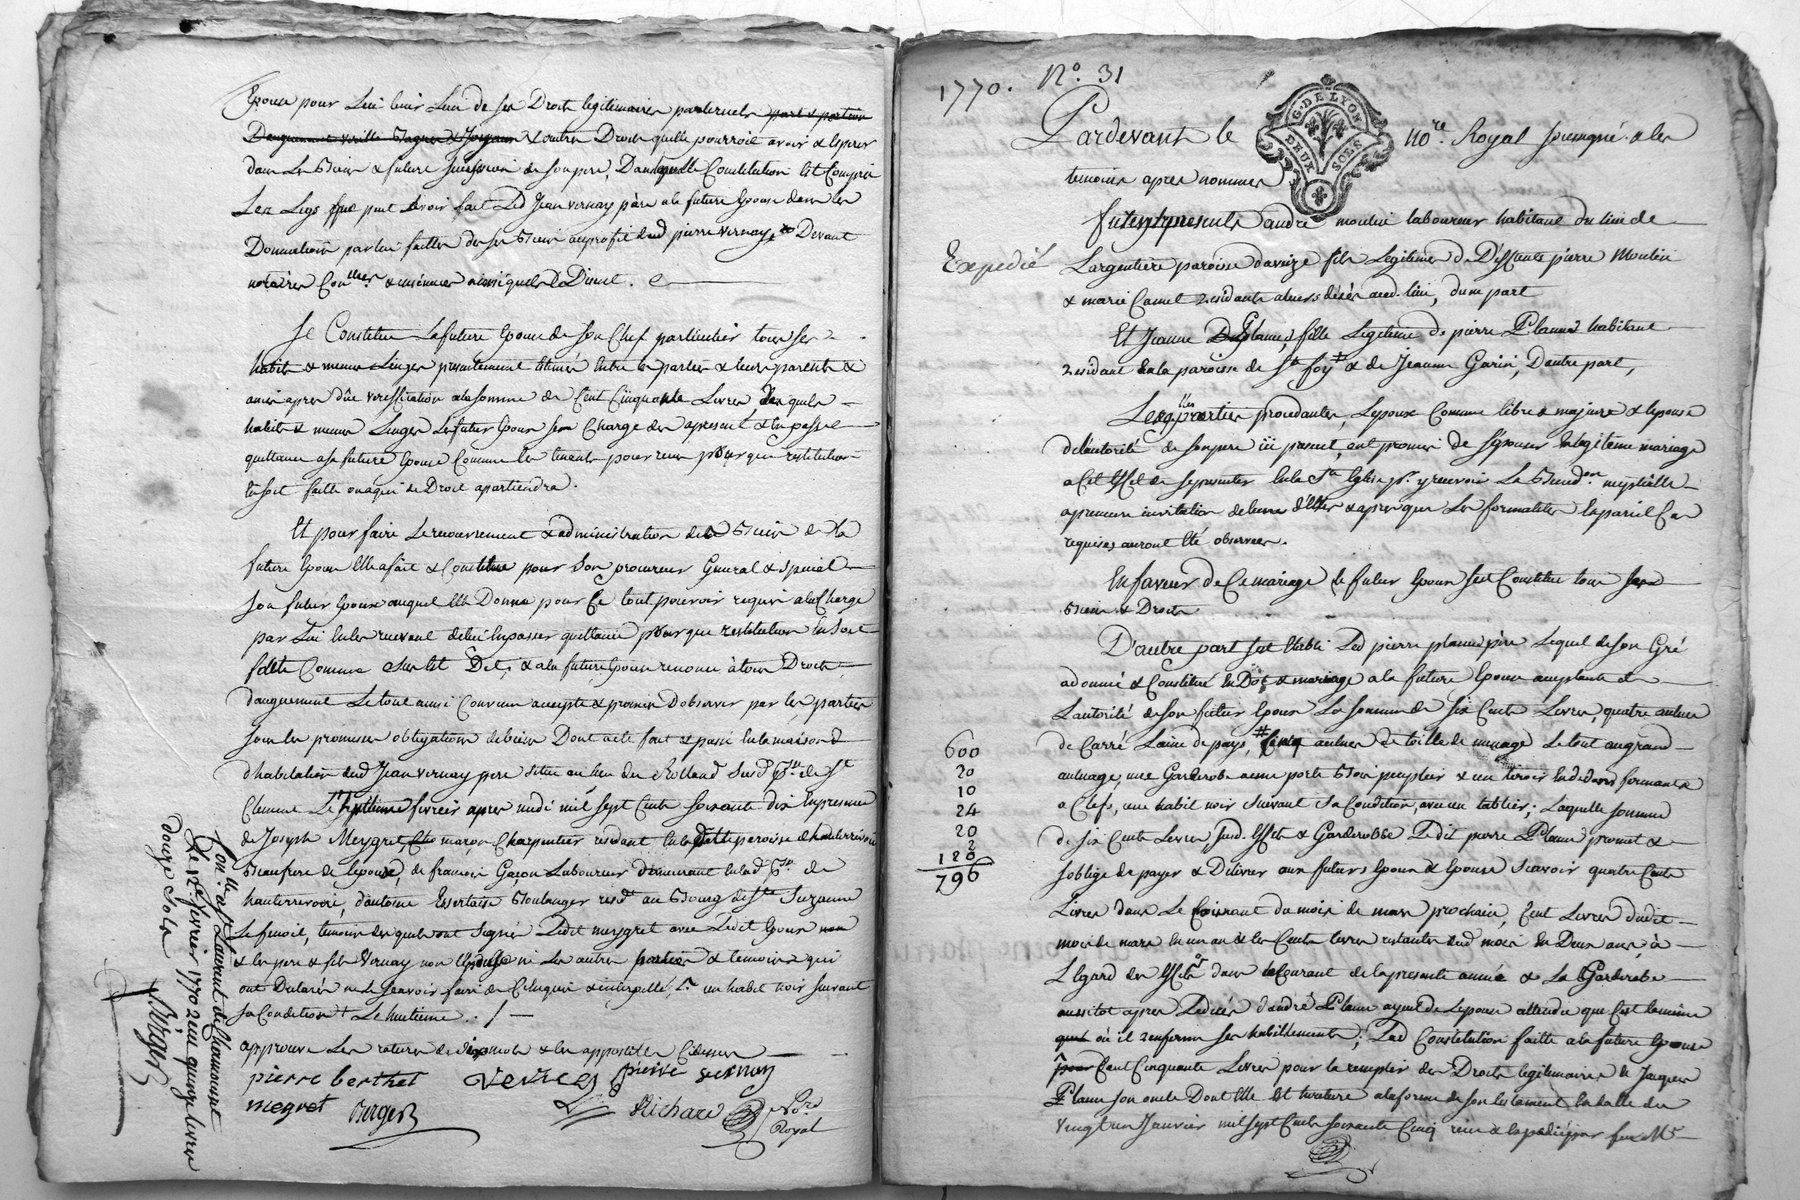 Epouse pour lui tenir lieu de ses Droits legitimaires paternels
& autres Droits quelle pourroit avoir & esperer
dans les Biens & future succession de son pere, Dans laquelle Constitution est Compris
Les Legs que peut avoir fait Led Jean vernay père a la future Epouse dans les
Donnation par lui faittes de ses Biens au profit dud pierre vernay Devant
notaires
Se Constitue la future Epouse de Son Chef particulier tous ses
habits & menus Linges presentement Estimés Entre les parties & leurs parents &
amis apres dûe veriffication a la somme de Cent Cinquante Livres Desquels
habits & menus Linges le futur Epoux se Charge des apresent & En passe
quittance a la future Epouse Comme les tenants pour reçus pour que restitution
En soit faitte ou a qui de Droit apartiendra.
Et pour faire Le recouvrement & administration des Biens de la
future Epouse Elle a fait & Constitué pour Son procureur General & special
Son futur Epoux auquel Elle Donne pour Ce tout pouvoir requis a la Charge
par Lui En les recevant d'en passer quittance pour que restitution En soit
faitte Comme & a la future Epouse renoncé à tous Droits
daugment Le tout ainsi Convenu accepté & promis D'observer par les parties
sous les promesses obligations de biens Dont acte fait & passé En la maison
d'habitation dud Jean vernay pere située au lieu du Rolland Susd Psse de St
Clement Le Septieme fevrier apres midi mil sept Cents soixante dix En presence
de Joseph Meygret maçon Charpentier residant En la ditte paroisse d'hauterrivoire
Beaufrere de lepoux, de francois Gaçon Laboureur demeurant En lad Psse de
hauterrevoire, d'antoine Essertaise Boulanger resdt au Bourg de Ste Suzanne
Le fenoil, temoins desquels ont signé Ledit meygret avec Ledit Epoux
& les pere & fils Vernay non Lepouse ni Les autres parties & temoins qui
ont Declarés ne le sçavoir faire de Ce Enquis & interpellé, un habit noir suivant
sa Condition Le huitieme ./.
approuvé Les ratures de dix mots & les appostilles Cidessus
pierre berthet
vernay
pierre vernay
megret
Berger
Richard
No.re Royal
Con.lle a St Laurent de Chamousset
Le 12e fevrier 1770 reçu quinze livres
douze sols
Berger
1770. No. 31
Pardevant le no.re Royal soussigné & les
G. DE LYON
DEUX SOLS
temoins apres nommés
Furent presents andré moulin laboureur habitant du lieu de
Expedié
Largentiere paroisse davaize fils Legitime de Deffunts pierre Moulin
& marie Camel residants alors décés aud. lieu, dune part
Et Jeanne Plasne, fille Legitime de pierre Plasne habitant
residant En la paroisse de Ste foy & de Jeanne Garin, D'autre part,
Lesqlles parties procedantes, L'epoux Comme libre & majeur & lepouse
de l'autorité de son pere ici present, ont promis de s'epouser En legitime mariage
a Cet Effet de se presenter En la Ste Eglise pr. y recevoir La Bened.on nuptialle
a premiere invitation de l'une d'Elles & apres que les formalités En pareil Cas
requises auront Eté observées.
En faveur de Ce mariage le futur Epoux sest Constitué tous ses
Biens & Droits
D'autre part sest Etabli Led pierre plasne père Lequel de son Gré
a donné & Constitué En Dot & mariage a la future Epouse acceptante de
Lautorité de son futur Epoux La somme de six Cents Livres, quatre aulnes
de Carré Laine de pays, Cinq aulnes de toille de menage Le tout au grand
aulnage, une Garderobe a une porte Bois peuplier & un tiroir En dedans fermants
a Clefs, un habit noir suivant Sa Condition, avec un tablier; Laquelle somme
de six Cents Livres, susd. Effets & Garderobbe Ledit pierre Plasne promet &
soblige de payer & Delivrer aux futurs Epoux & Epouse sçavoir quatre Cents
Livres dans Le Courant du mois de mars prochain, Cent Livres dudit
mois de mars En un an & les Cents livres restants dud mois En Deux ans, à
L'Egard des Effets dans le Courant de la presente année & La Garderobe
aussitot apres Le décés d'andré Plasne ayeul de Lepouse attendu que C'est la même
où il renferme ses habillements; Lad Constitution faitte a la future Epouse
Cent Cinquante Livres pour la remplir des Droits legitimaires de Jacques
Plasne son oncle Dont Elle Est heritiere a la forme de son testament En datte du
vingt un Janvier mil sept Cents soixante Cinq reçu & Expedié par feu Me
600
20
10
24
20
2
120
796